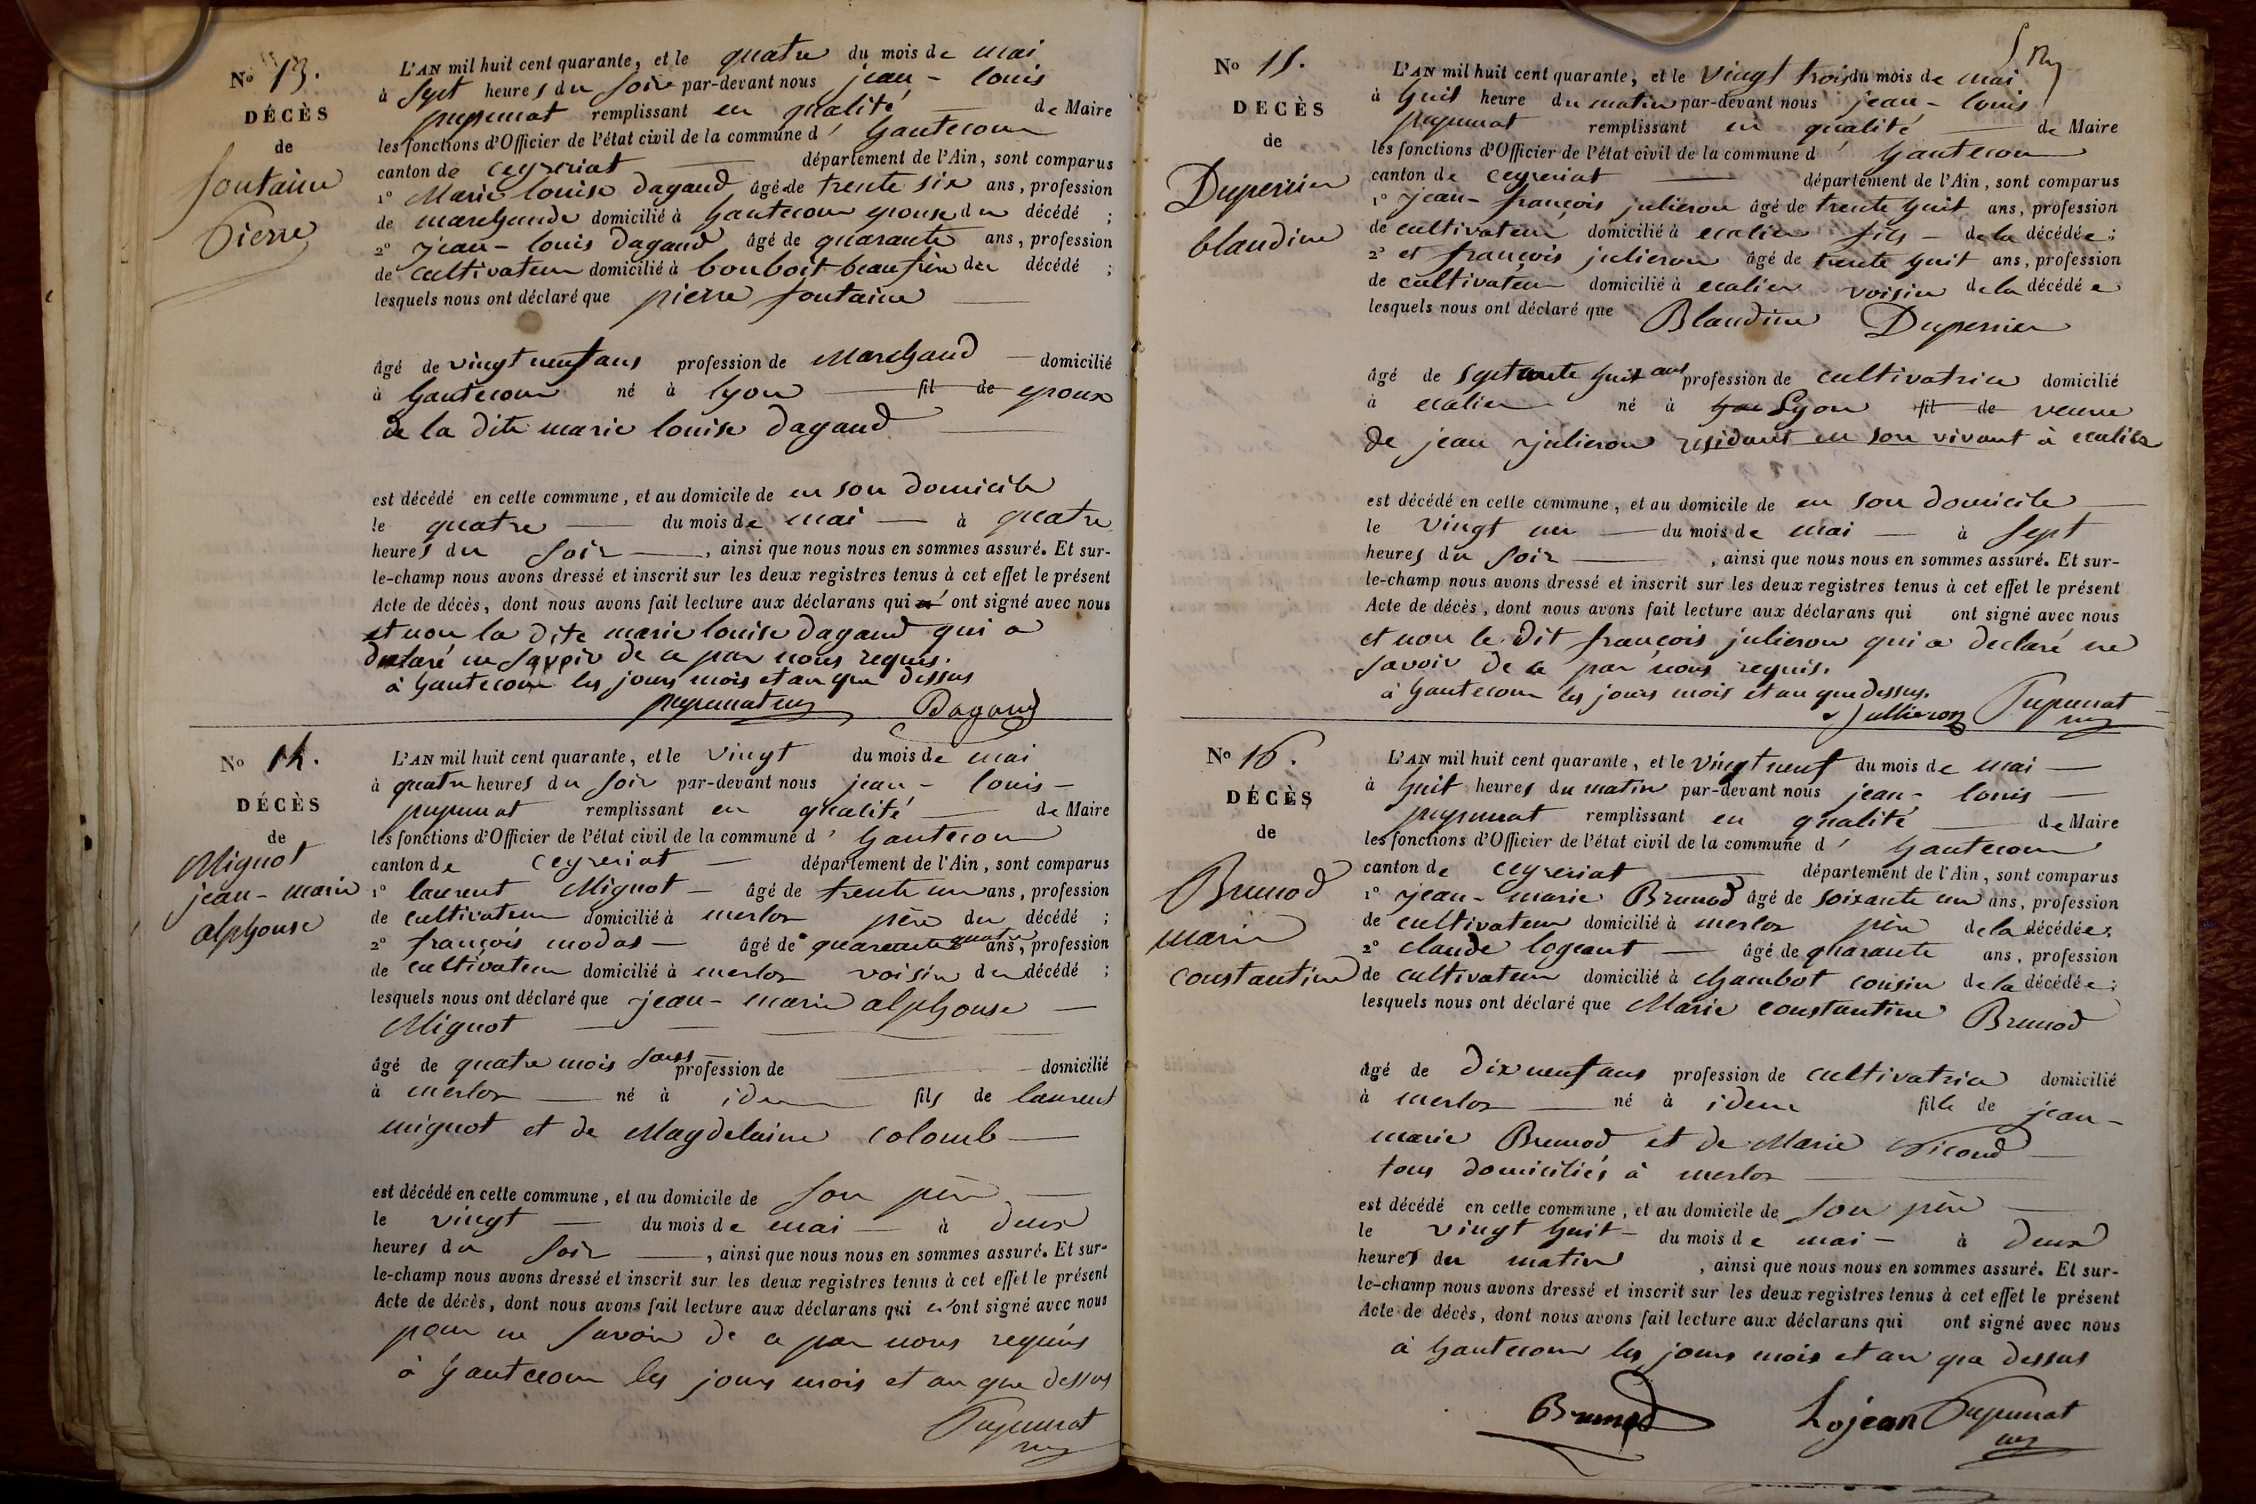 No 13.
DÉCÈS
de
fontaine
Pierre
L'AN mil huit cent quarante, et le quatre du mois de mai
à Sept heures du soir par-devant nous jean-louis
pupunat remplissant en qualité de Maire
les fonctions d'Officier de l'état civil de la commune d' hautecour
canton de ceyzeriat département de l'Ain, sont comparus
1° Marie louise dagaud âgé de trente six ans, profession
de marchande domicilié à hautecour epouse du décédé ;
2° jean-louis dagaud âgé de quarante ans, profession
de cultivateur domicilié à bouboit beaufrère du décédé ;
lesquels nous ont déclaré que pierre fontaine
âgé de vingt neuf ans profession de Marchand domicilié
à hautecour né à lyon fil de epoux
de la dite marie louise dagaud
est décédé en celle commune, et au domicile de en son domicile
le quatre du mois de mai à quatre
heures du soir, ainsi que nous nous en sommes assuré. Et sur-
le-champ nous avons dressé et inscrit sur les deux registres tenus à cet effet le présent
Acte de décès, dont nous avons fait lecture aux déclarans qui ont signé avec nous
et non la dite marie louise dagaud qui a
declaré ne savoir de ce par nous requis.
à hautecour les jours mois et an que dessus
pupunat Dagaud
No 14.
DÉCÈS
de
Mignot
jean-marie
alphonse
L'AN mil huit cent quarante, et le vingt du mois de mai
à quatre heures du soir par-devant nous jean-louis-
pupunat remplissant en qualité de Maire
les fonctions d'Officier de l'état civil de la commune d' hautecour
canton de ceyzeriat département de l'Ain, sont comparus
1° laurent Mignot âgé de trente un ans, profession
de cultivateur domicilié à merloz père du décédé ;
2° françois modas âgé de quarante quatre ans, profession
de cultivateur domicilié à merloz voisin du décédé ;
lesquels nous ont déclaré que jean-marie alphonse
Mignot
âgé de quatre mois sans profession de domicilié
à merloz né à idem fils de laurent
mignot et de Magdelaine colomb
est décédé en celle commune, et au domicile de son père
le vingt du mois de mai à deux
heures du soir, ainsi que nous nous en sommes assuré. Et sur-
le-champ nous avons dressé et inscrit sur les deux registres tenus à cet effet le présent
Acte de décès, dont nous avons fait lecture aux déclarans qui n'ont signé avec nous
pour ne savoir de ce par nous requis
à hautecour les jours mois et an que dessus
Pupunat
No 15.
DECÈS
de
Duperrier
blandine
L'AN mil huit cent quarante, et le vingt trois du mois de mai
à huit heure du matin par-devant nous jean-louis
pupunat remplissant en qualité de Maire
les fonctions d'Officier de l'état civil de la commune d' hautecour
canton de ceyzeriat département de l'Ain, sont comparus
1° jean-françois julieron âgé de trente huit ans, profession
de cultivateur domicilié à ecalier fils de la décédée ;
2° et françois julieron âgé de trente huit ans, profession
de cultivateur domicilié à ecalier voisin de la décédée
lesquels nous ont déclaré que Blandine Duperrier
âgé de septante huit ans profession de cultivatrice domicilié
à ecalier né à Lyon fil de veuve
de jean julieron residant en son vivant à ecalier
est décédé en celle commune, et au domicile de en son domicile
le vingt un du mois de mai à sept
heures du soir, ainsi que nous nous en sommes assuré. Et sur-
le-champ nous avons dressé et inscrit sur les deux registres tenus à cet effet le présent
Acte de décès, dont nous avons fait lecture aux déclarans qui ont signé avec nous
et non le dit françois julieron qui a declaré ne
savoir de ce par nous requis.
à hautecour les jours mois et an que dessus.
Jullieron Pupunat
No 16.
DÉCÈS
de
Brunod
marie
constantine
L'AN mil huit cent quarante, et le vingt neuf du mois de mai
à huit heures du matin par-devant nous jean-louis
pupunat remplissant en qualité de Maire
les fonctions d'Officier de l'état civil de la commune d' hautecour
canton de ceyzeriat département de l'Ain, sont comparus
1° jean-marie Brunod âgé de soixante un ans, profession
de cultivateur domicilié à merloz père de la décédée ;
2° claude logeant âgé de quarante ans, profession
de cultivateur domicilié à chambot cousin de la décédée ;
lesquels nous ont déclaré que Marie constantine Brunod
âgé de dix neuf ans profession de cultivatrice domicilié
à merloz né à idem fille de jean-
marie Brunod et de Marie
tous domiciliés à merloz
est décédé en celle commune, et au domicile de son père
le vingt huit du mois de mai à deux
heures du matin, ainsi que nous nous en sommes assuré. Et sur-
le-champ nous avons dressé et inscrit sur les deux registres tenus à cet effet le présent
Acte de décès, dont nous avons fait lecture aux déclarans qui ont signé avec nous
à hautecour les jours mois et an que dessus
Brunod Lojean Pupunat